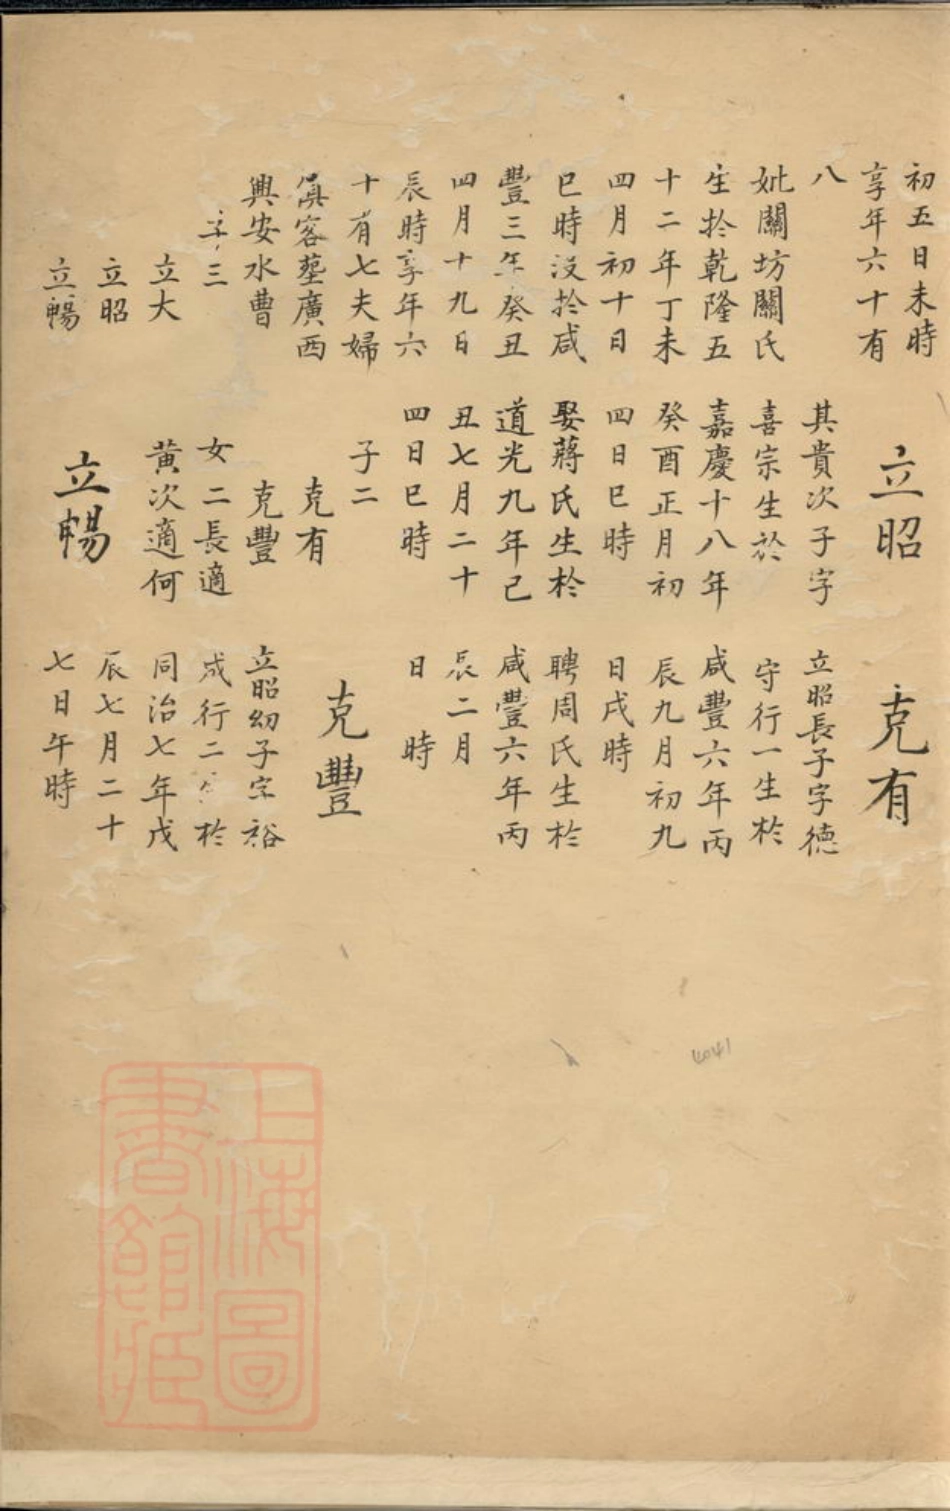 初五日未時
享年六十有
八
妣關坊關氏
生於乾隆五
十二年丁未
四月初十日
巳時沒於咸
豐三年癸丑
四月十九日
辰時享年六
十有七夫婦
客塟廣西
興安水曹
子三
立大
立昭
立暢
立昭
其貴次子字
喜宗生於
嘉慶十八年
癸酉正月初
四日巳時
娶蔣氏生於
道光九年己
丑七月二十
四日巳時
子二
克有
克豐
女二長適
黃次適何
立暢
克有
立昭長子字德
守行一生於
咸豐六年丙
辰九月初九
日戌時
聘周氏生於
咸豐六年丙
辰二月
日 時
克豐
立昭幼子宗裕
成行二 於
同治七年戊
辰七月二十
七日午時
4041
上海圖
書館藏